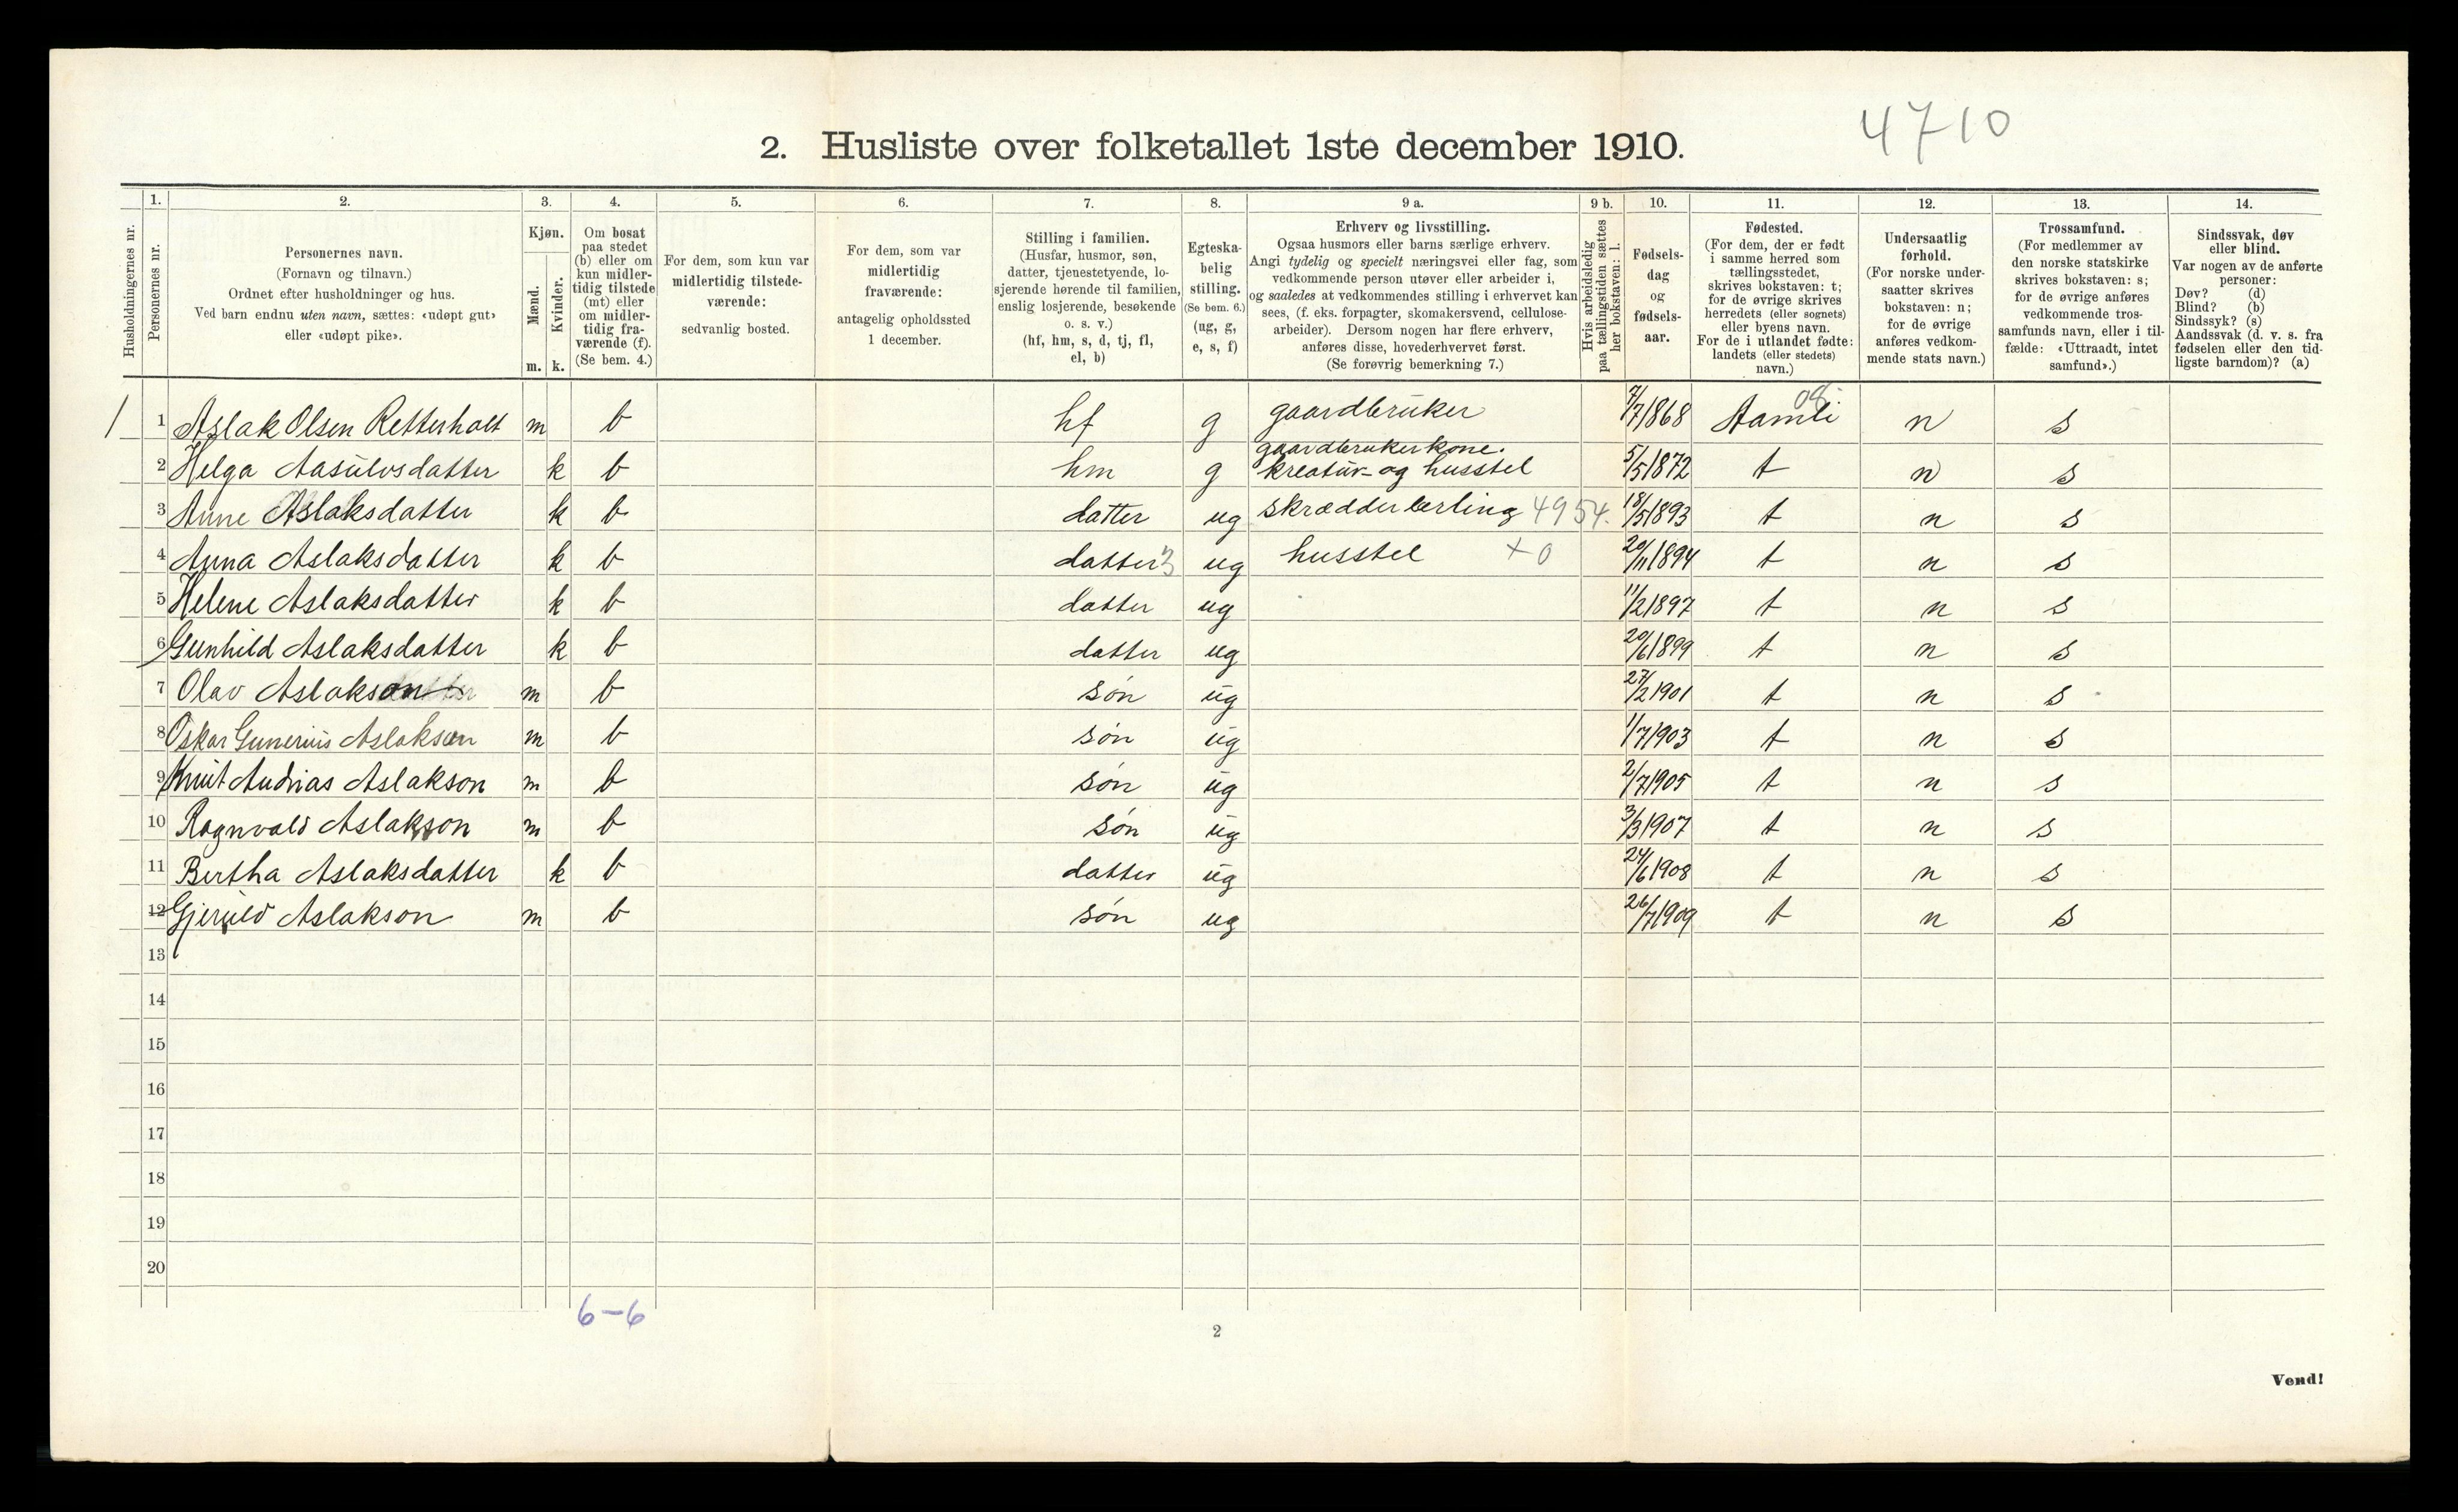 4710
2. Husliste over folketallet 1ste december 1910.
1. 2. 3. 4. 5. 6. 7. 8. 9 a. 9 b. 10. 11. 12. 13. 14.
Husholdningernes nr.
Personernes nr.
Personernes navn.
(Fornavn og tilnavn.)
Ordnet efter husholdninger og hus.
Ved barn endnu uten navn, sættes: «udøpt gut»
eller «udøpt pike».
Kjøn.
Mænd.
Kvinder.
m. k.
Om bosat
paa stedet
(b) eller om
kun midler-
tidig tilstede
(mt) eller
om midler-
tidig fra-
værende (f).
(Se bem. 4.)
For dem, som kun var
midlertidig tilstede-
værende:
sedvanlig bosted.
For dem, som var
midlertidig
fraværende:
antagelig opholdssted
1 december.
Stilling i familien.
(Husfar, husmor, søn,
datter, tjenestetyende, lo-
sjerende hørende til familien,
enslig losjerende, besøkende
o. s. v.)
(hf, hm, s, d, tj, fl,
el, b)
Egteska-
belig
stilling.
(Se bem. 6.)
(ug, g,
e, s, f)
Erhverv og livsstilling.
Ogsaa husmors eller barns særlige erhverv.
Angi tydelig og specielt næringsvei eller fag, som
vedkommende person utøver eller arbeider i,
og saaledes at vedkommendes stilling i erhvervet kan
sees, (f. eks. forpagter, skomakersvend, cellulose-
arbeider). Dersom nogen har flere erhverv,
anføres disse, hovederhvervet først.
(Se forøvrig bemerkning 7.)
Hvis arbeidsledig
paa tællingstiden sættes
her bokstaven: l.
Fødsels-
dag
og
fødsels-
aar.
Fødested.
(For dem, der er født
i samme herred som
tællingsstedet,
skrives bokstaven: t;
for de øvrige skrives
herredets (eller sognets)
eller byens navn.
For de i utlandet fødte:
landets (eller stedets)
navn.)
Undersaatlig
forhold.
(For norske under-
saatter skrives
bokstaven: n;
for de øvrige
anføres vedkom-
mende stats navn.)
Trossamfund.
(For medlemmer av
den norske statskirke
skrives bokstaven: s;
for de øvrige anføres
vedkommende tros-
samfunds navn, eller i til-
fælde: «Uttraadt, intet
samfund».)
Sindssvak, døv
eller blind.
Var nogen av de anførte
personer:
Døv? (d)
Blind? (b)
Sindssyk? (s)
Aandssvak (d. v. s. fra
fødselen eller den tid-
ligste barndom)? (a)
1 1 Aslak Olsen Retterholt m b hf g gaardbruker 7/7 1868 Aamli 08 n s
gaardbrukerkone.
2 Helga Aasulvsdatter k b hm g kreatur- og husstel 5/5 1872 t n s
3 Anne Aslaksdatter k b datter ug skrædderlærling 4954. 18/5 1893 t n s
4 Anna Aslaksdatter k b datter 3 ug husstel +0 20/11 1894 t n s
5 Helene Aslaksdatter k b datter ug 11/2 1897 t n s
6 Gunhild Aslaksdatter k b datter ug 20/6 1899 t n s
7 Olav Aslakson m b søn ug 27/2 1901 t n s
8 Oskar Gunerius Aslaksen m b søn ug 1/7 1903 t n s
9 Knut Andrias Aslakson m b søn ug 2/7 1905 t n s
10 Ragnvald Aslakson m b søn ug 3/3 1907 t n s
11 Bertha Aslaksdatter k b datter ug 24/6 1908 t n s
12 Gjeruld Aslakson m b søn ug 26/7 1909 t n s
13
14
15
16
17
18
19
20
6-6
2
Vend!